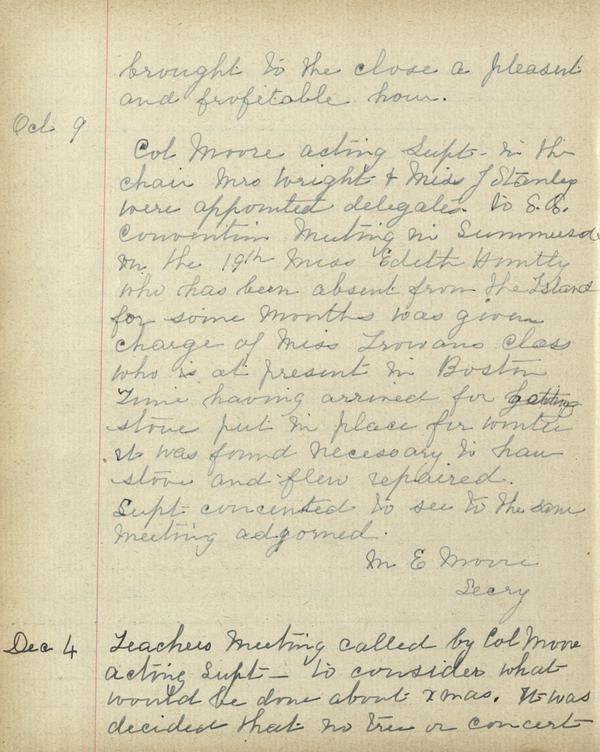 brought to the close a pleasent
and profitable hour.
Oct 9
Col Moore acting Supt - in the
chair Mrs Wright & Miss J Stanley
were appointed delegates. to S.S.
Convention Meeting in Summerside
on the 19th Miss Edith Huntly
who has been absent from the Island
for some months was given
charge of Miss Trowans Class
who is at present in Boston
Time having arrived for getting
stove put in place for winter
it was found necessary to have
stove and flew repaired.
Supt concented to see to the same
Meeting adgorned.
M E Moore
Secry
Dec 4
Teachers Meeting called by Col Moore
acting Supt - to consider what
would be done about xmas. It was
decided that no tree or concert